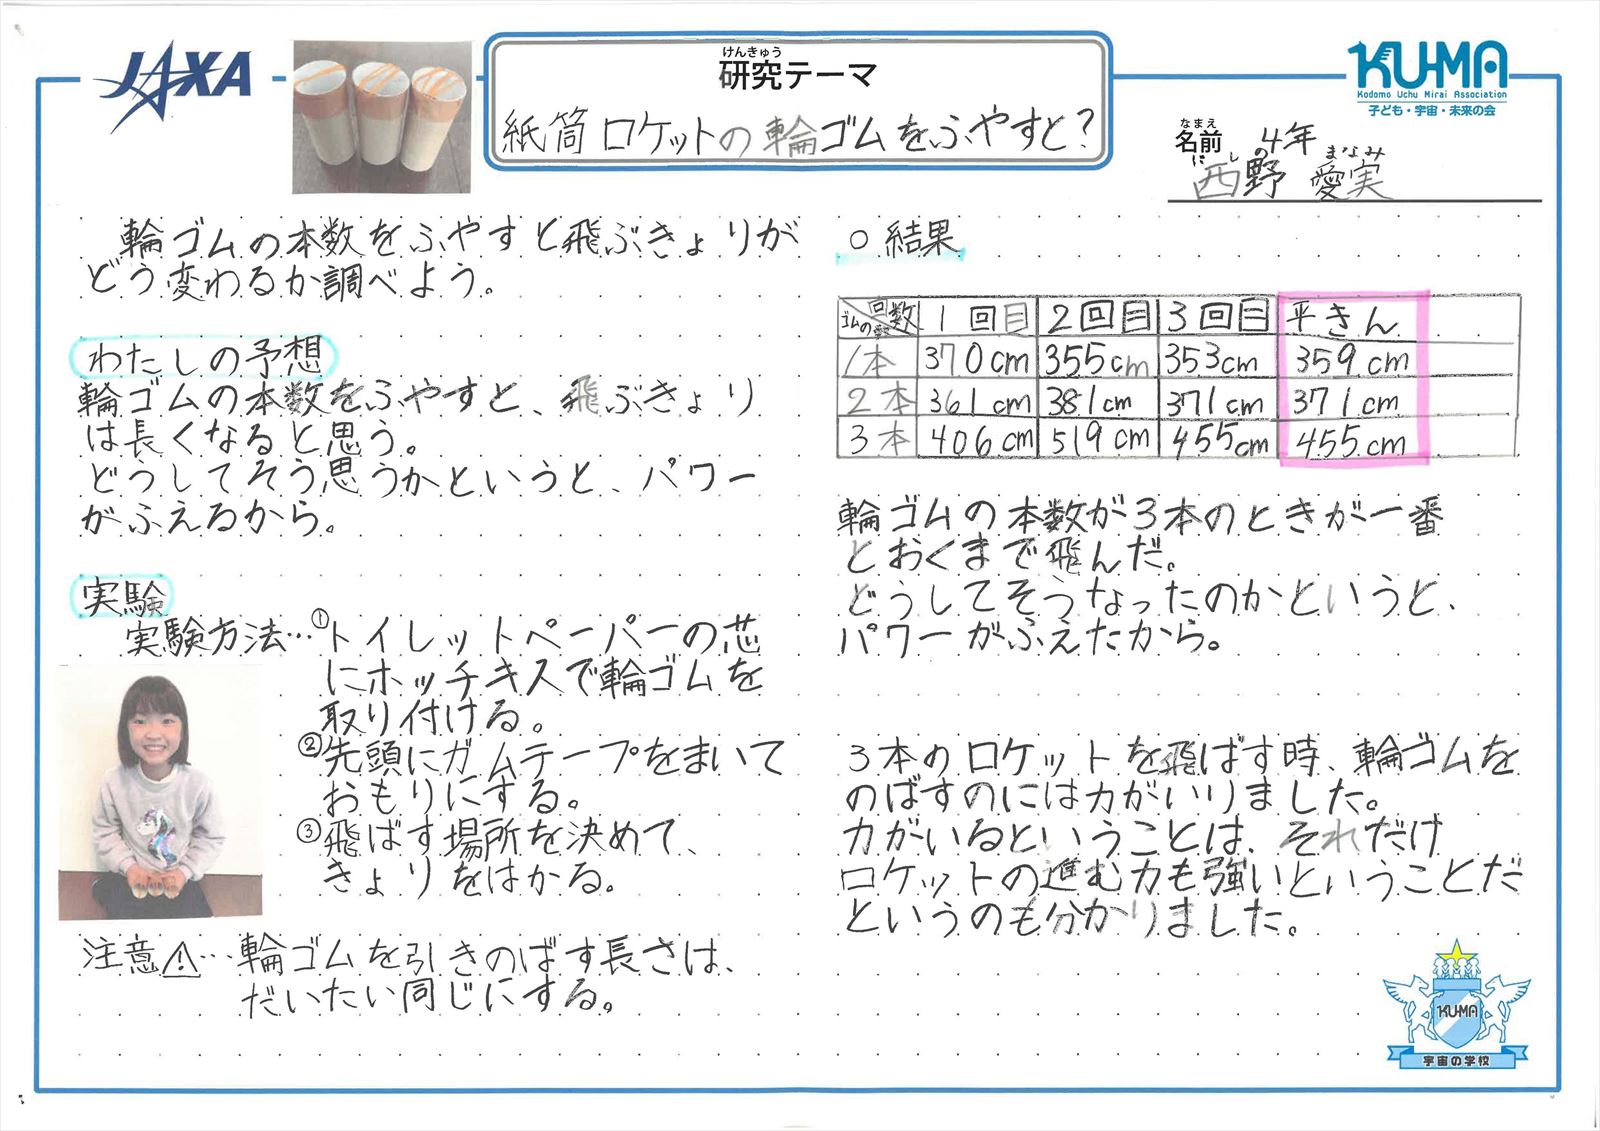 JAXA
けんきゅう
研究テーマ
紙筒ロケットの輪ゴムをふやすと?
KU-MA
Kodomo Uchu Mirai Association
子ども・宇宙・未来の会
なまえ
名前
4年
にしの まなみ
西野 愛実
輪ゴムの本数をふやすと飛ぶきょりが
どう変わるか調べよう。
わたしの予想
輪ゴムの本数をふやすと、飛ぶきょり
は長くなると思う。
どうしてそう思うかというと、パワー
がふえるから。
実験
実験方法…①トイレットペーパーの芯
にホッチキスで輪ゴムを
取り付ける。
②先頭にガムテープをまいて
おもりにする。
③飛ばす場所を決めて、
きょりをはかる。
注意⚠…輪ゴムを引きのばす長さは、
だいたい同じにする。
○結果
回数 1回目 2回目 3回目 平きん
ゴムの
1本 370cm 355cm 353cm 359cm
2本 361cm 381cm 371cm 371cm
3本 406cm 519cm 455cm 455cm
輪ゴムの本数が3本のときが一番
とおくまで飛んだ。
どうしてそうなったのかというと、
パワーがふえたから。
3本のロケットを飛ばす時、輪ゴムを
のばすのには力がいりました。
力がいるということは、それだけ
ロケットの進む力も強いということだ
というのも分かりました。
KU-MA
宇宙の学校